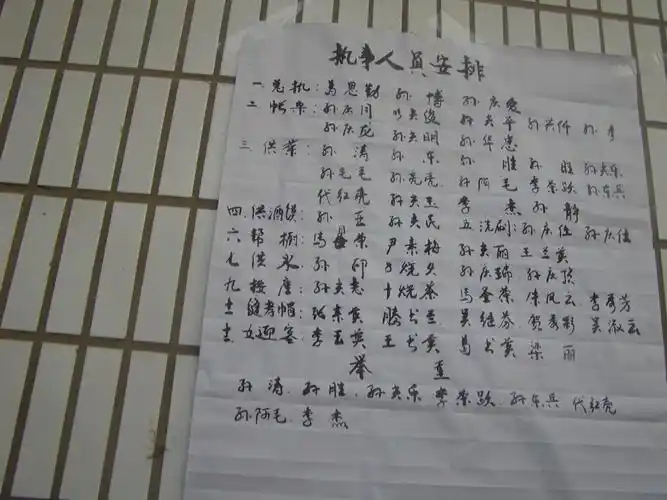 执事人员安排
一总执：葛恩勤 孙博 孙庆爱
二帐桌：孙庆同 孙关俊 孙关平 孙兴仟 孙
孙庆龙 孙关明 孙华忠
三供菜：孙涛 孙东 孙胜 孙 孙关东
孙毛毛 孙亮亮 孙阿毛 李荣跃 孙东兵
代红亮 孙关玉 李杰 孙静
四供酒馍：孙亚 孙关民 五洗刷：孙庆 孙庆
六帮橱：马荣 尹素梅 孙关丽 王兰英
七供水：孙 八烧火 孙庆瑞 孙庆
九按座：孙关志 十烧茶 马圣荣 朱凤云 李秀芳
十一缝孝帽：张素英 滕士兰 吴继芬 贺秀彩 吴淑云
十二女迎客：李玉英 王士英 葛士英 梁丽
举重
孙涛 孙胜 孙关乐 李荣跃 孙东兵 代红亮
孙阿毛 李杰